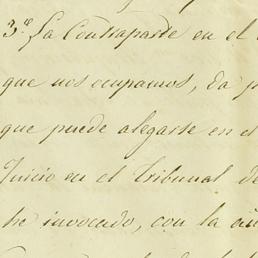 3ª La Contraparte en el
que nos ocupamos, da p
que puede alegarse en el
Juicio en el Tribunal de
he invocado, con la